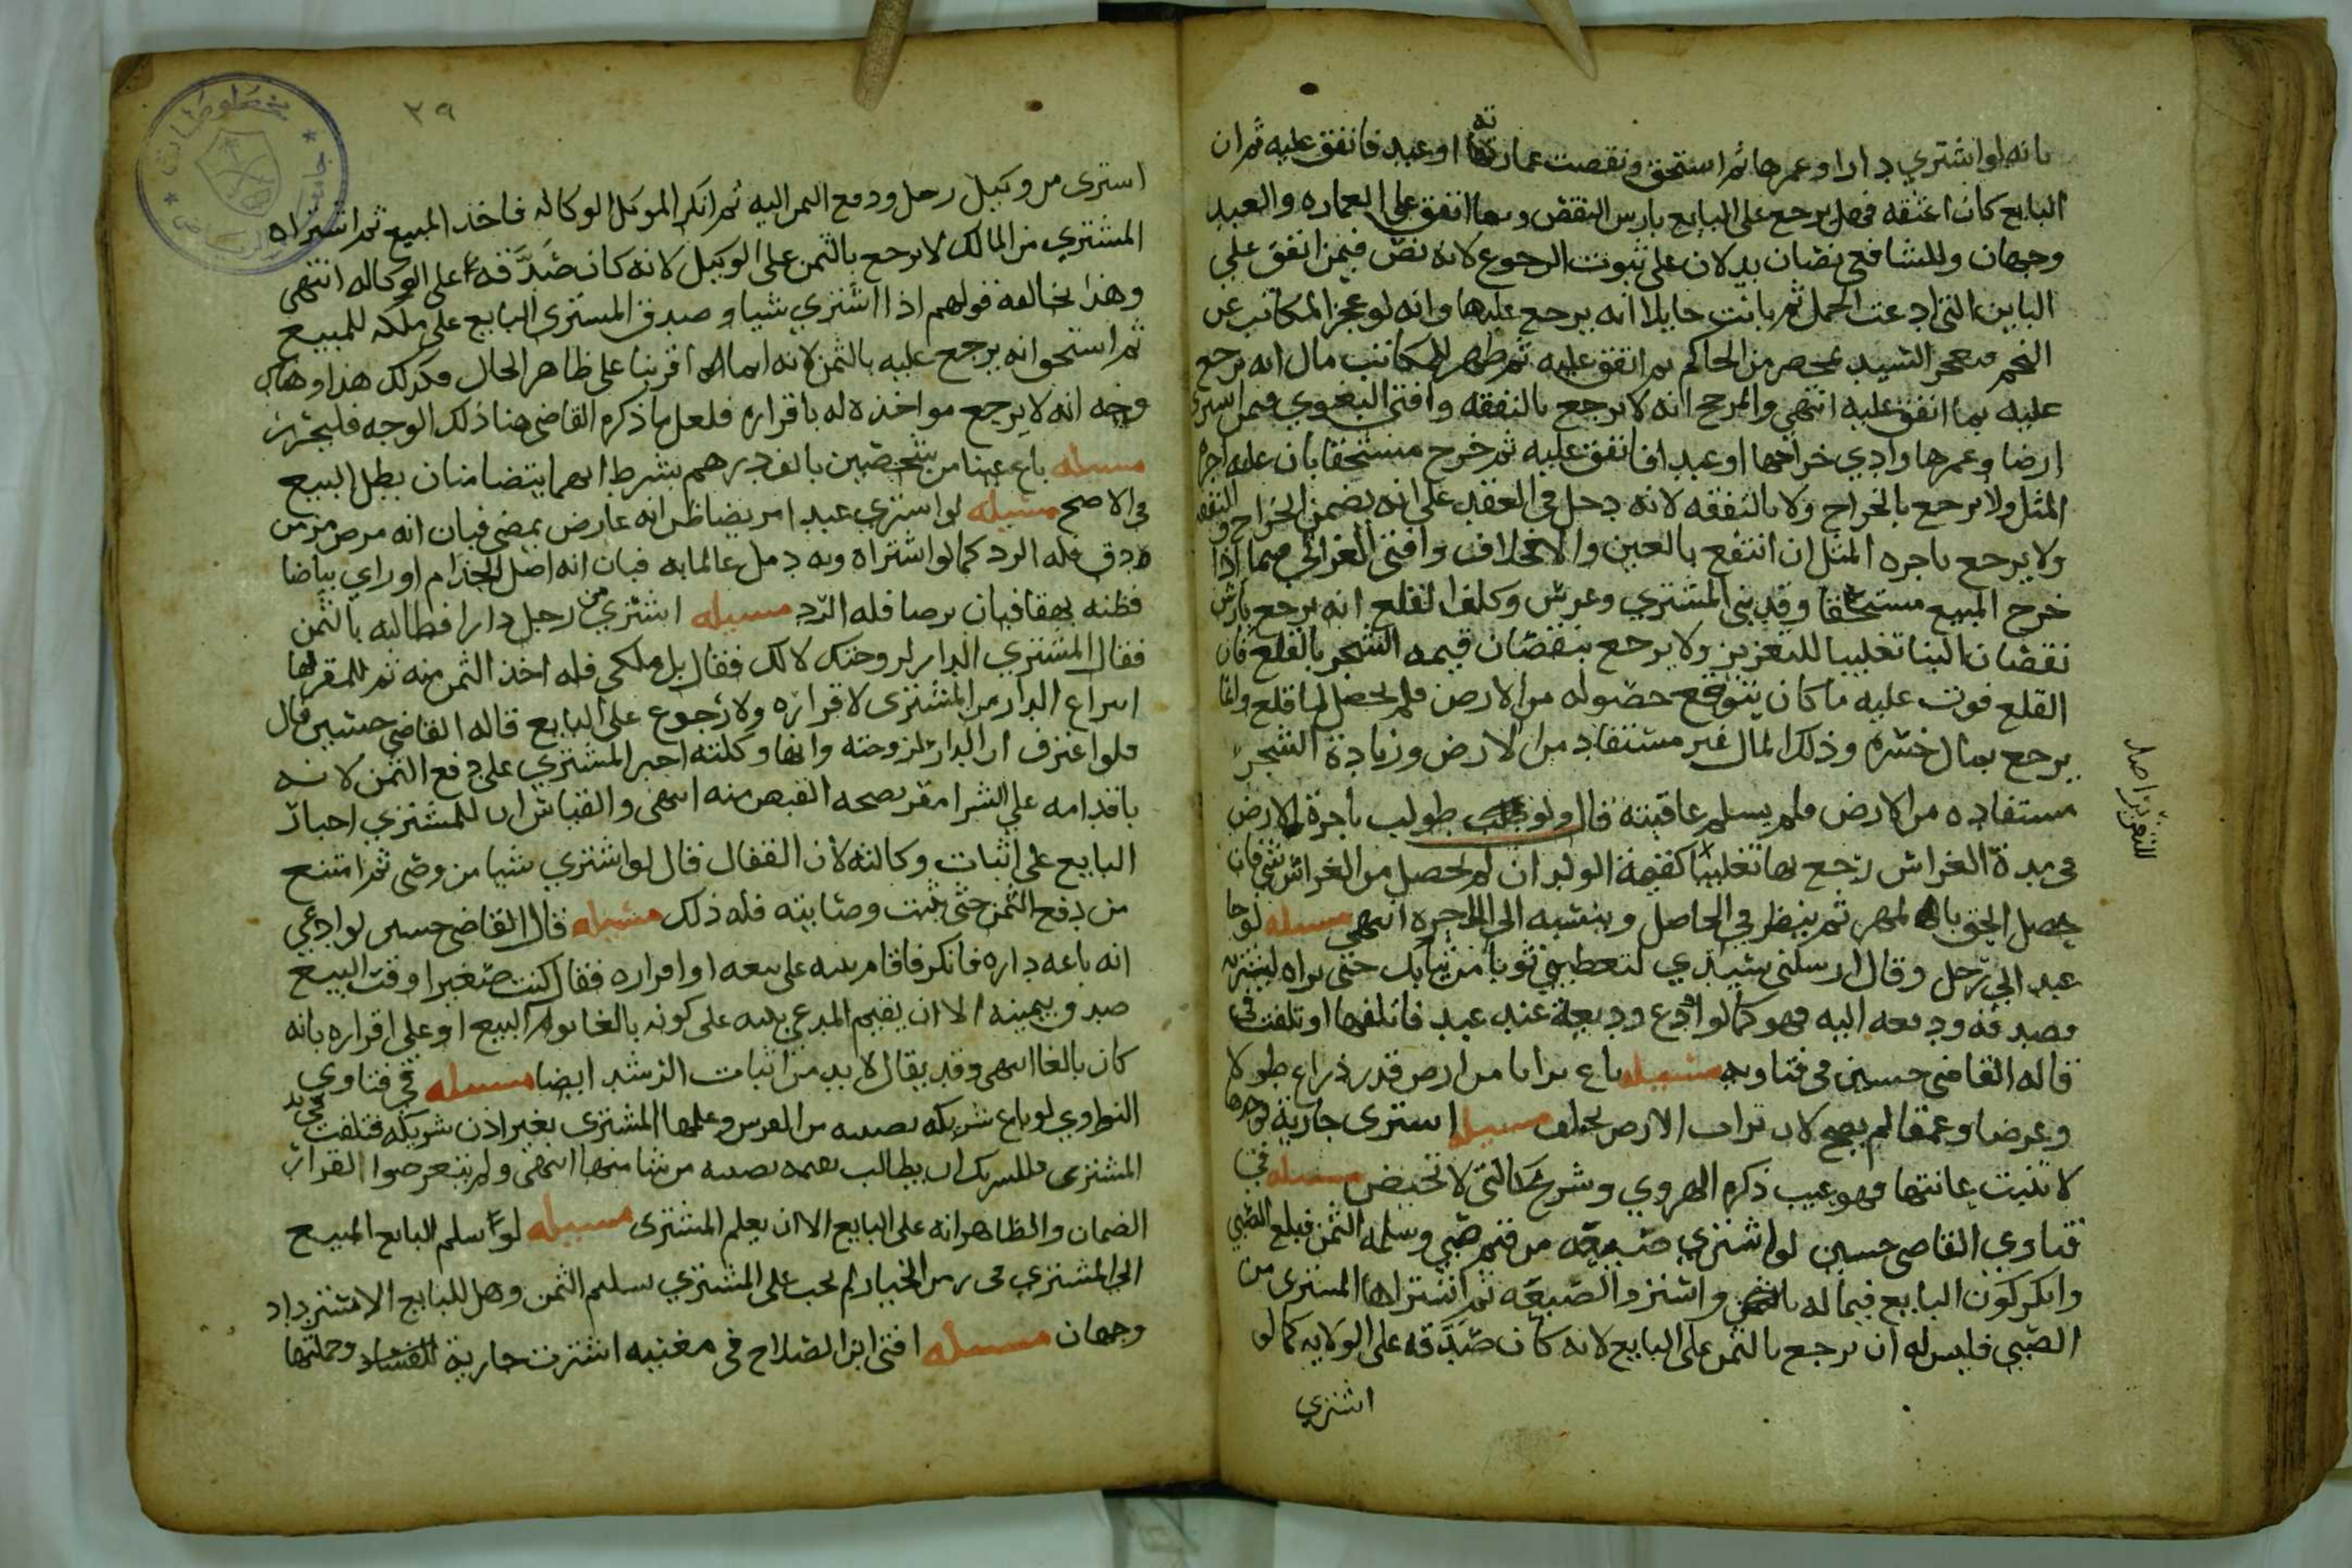 بانه لو اشتري دارا وعمرها ثم استحق ونقصت عمارته او عبد فانفق عليه ثم ان
البايع كان اعتقه فهل يرجع على البايع بارس النقض وبما انفق على العماره والعبد
وجهان وللشافعي نصان يدلان على ثبوت الرجوع لانه نص فيمن انفق علي
الباين التي ادعت الحمل ثم بانت حايلا انه يرجع عليها وانه لو عجز المكاتب عن
النجم فعجز السيد بمحضر من الحاكم ثم انفق عليه ثم ظهر للمكاتب مال انه يرجع
عليه بما انفق عليه انتهي والمرجح انه لا يرجع بالنفقه وافتي البغوي فيمن اسري
ارضا وعمرها وادي خراجها او عبدا فانفق عليه ثم خرج مستحقا بان عليه اجره
المثل ولا يرجع بالخراج ولا بالنفقه لانه دخل في العقد على انه يضمن الخراج والنفقه
ولا يرجع باجره المثل ان انتفع بالعين والا فخلاف وافتي الغزالي فيما اذا
خرج المبيع مستحقا وقد بنى المشتري وغرس وكلف القلع انه يرجع بارش
نقصان البنا تغليبا للتغرير ولا يرجع بنقصان قيمه الشجر بالقلع فان
القلع فوت عليه ما كان يتوقع حصوله من الارض فلم يحصل لما قلع وانما
يرجع بمال خسره وذلك المال غير مستفاد من الارض وزيادة الشجر
مستفاده من الارض فلم يسلم عاقبته قال ولو طولب باجرة الارض
في مدة الغراس رجع بها تغليبا كقيمة الولد ان لم يحصل من الغراس شي فان
حصل الحق بالمهر ثم ينظر في الحاصل ونسبته الي الاجره انتهي مسئله لو جا
عبد الي رجل وقال ارسلني سيدي لتعطيني ثوبا من ثيابك حتى يراه ليشتريه
فصدقه ودفعه اليه فهو كما لو اودع وديعة عند عبد فاتلفها او تلفت في
قاله القاضي حسين في فتاويه مسئله باع ترابا من ارض قدر ذراع طولا
وعرضا وعمقا لم يصح لان تراب الارض يختلف مسئله استرى جارية فوجدها
لا تنبت عانتها فهو عيب ذكره الهروي وشريح كالتي لا تحيض مسئله في
فتاوي القاضي حسين لو اشتري ضيعه من قيم صبي وسلمه الثمن فبلغ الصبي
وانكر كون البايع قيما له واسترد الضيعه ثم اشتراها المشترى من
الصبي فليس له ان يرجع بالثمن على البايع لانه كان صدقه على الولايه كما لو
اشتري
للتغرير اصله
٢٩
استرى من وكيل رجل ودفع الثمن اليه ثم انكر الموكل الوكاله فاخذ المبيع ثم اشتراه
المشتري من المالك لا يرجع بالثمن على الوكيل لانه كان صدقه على الوكاله انتهي
وهذا يخالفه قولهم اذا اشتري شيا وصدق المشتري البايع على ملكه للمبيع
ثم استحق انه يرجع عليه بالثمن لانه انما اقر بنا على ظاهر الحال فكذلك هذا وهناك
وجه انه لا يرجع مواخذه له باقراره فلعل ما ذكره القاضي هنا ذلك الوجه فليحرر
مسئله باع عينا من شخصين بالف درهم بشرط انهما يتضامنان بطل البيع
في الاصح مسئله لو اشتري عبدا مريضا ظن انه عارض يمضي فبان انه مرض مزمن
دق فله الرد كما لو اشتراه وبه دمل عالما به فبان انه اصل الجذام او راي بياضا
فظنه بهقا فبان برصا فله الرد مسيله اشتري من رجل دارا فطالبه بالثمن
فقال المشتري الدار لزوجتك لا لك فقال بل ملكي فله اخذ الثمن منه ثم للمقر لها
انتزاع الدار من المشتري لاقراره ولا رجوع على البايع قاله القاضي حسين قال
فلو اعترف ان الدار لزوجته وانها وكلته اجبر المشتري على دفع الثمن لانه
باقدامه علي الشرا مقر بصحه القبض منه انتهى والقياس ان للمشتري اجبار
البايع على اثبات وكالته لان القفال قال لو اشتري شيا من وصى ثم امتنع
من دفع الثمن حتى يثبت وصايته فله ذلك مسئله قال القاضي حسين لو ادعي
انه باعه داره فانكر فاقام بينه على بيعه او اقراره فقال كنت صغيرا وقت البيع
صدق بيمينه الا ان يقيم المدعي بينه على كونه بالغا يوم البيع او على اقراره بانه
كان بالغا انتهي وقد يقال لا بد من اثبات الرشد ايضا مسئله في فتاوي
النواوي لو باع شريكه نصيبه من الفرس وعلمها المشترى بغير اذن شريكه فتلفت في يد
المشترى فللشريك ان يطالب بقيمه نصيبه من شا منهما انتهى ولم يتعرضوا لقرار
الضمان والظاهر انه على البايع الا ان يعلم المشترى مسيله لو سلم البايع المبيع
الي المشتري في زمن الخيار لم يجب على المشتري تسليم الثمن وهل للبايع الاسترداد
وجهان مسئله افتى ابن الصلاح في مغنيه اشترت جارية للفساد وحملتها